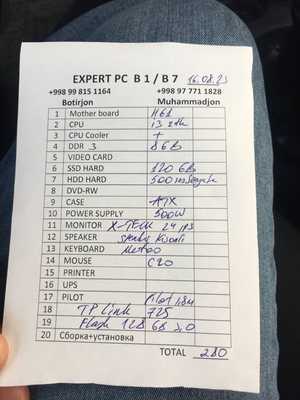 EXPERT PC B 1 / B 7 16.08.23
+998 99 815 1164 +998 97 771 1828
Botirjon Muhammadjon
1 Mother board H61
2 CPU i3 2th
3 CPU Cooler +
4 DDR _3 8GB
5 VIDEO CARD
6 SSD HARD 120 GB
7 HDD HARD 500
8 DVD-RW
9 CASE ATX
10 POWER SUPPLY 500W
11 MONITOR X-TECH 24 ips
12 SPEAKER
13 KEYBOARD Metoo
14 MOUSE C20
15 PRINTER
16 UPS
17 PILOT Pilot
18 TP Link 725
19 Flash 128 GB 3.0
20 Сборка+установка
TOTAL 280